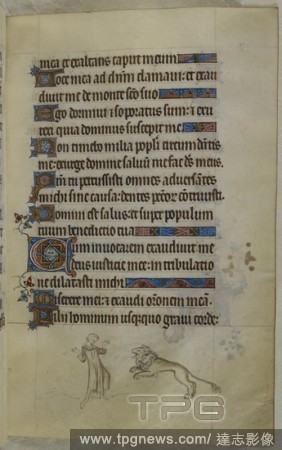 mea et exaltans caput meum
Voce mea ad dñm clamaui: et exau
diuit me de monte sc̃o suo
Ego dormiui ⁊ soporatus sum: ⁊ exu
rexi quia dominus suscepit me
Non timebo milia populi circumdãtis
me: exurge domine saluũ me fac ds̃ meus.
Qm̃ tu percussisti omnes aduersãtes
michi sine causa: dentes pctõr contriuisti.
Domini est salus: et super populum
tuum benedictio tua
Cum inuocarem exaudiuit me
deus iusticie mee: in tribulatio
ne dilatasti michi
Miserere mei: ⁊ exaudi orõnem meã.
Filii hominum usquequo graui corde:
TPG
www.tpgnews.com / 達志影像